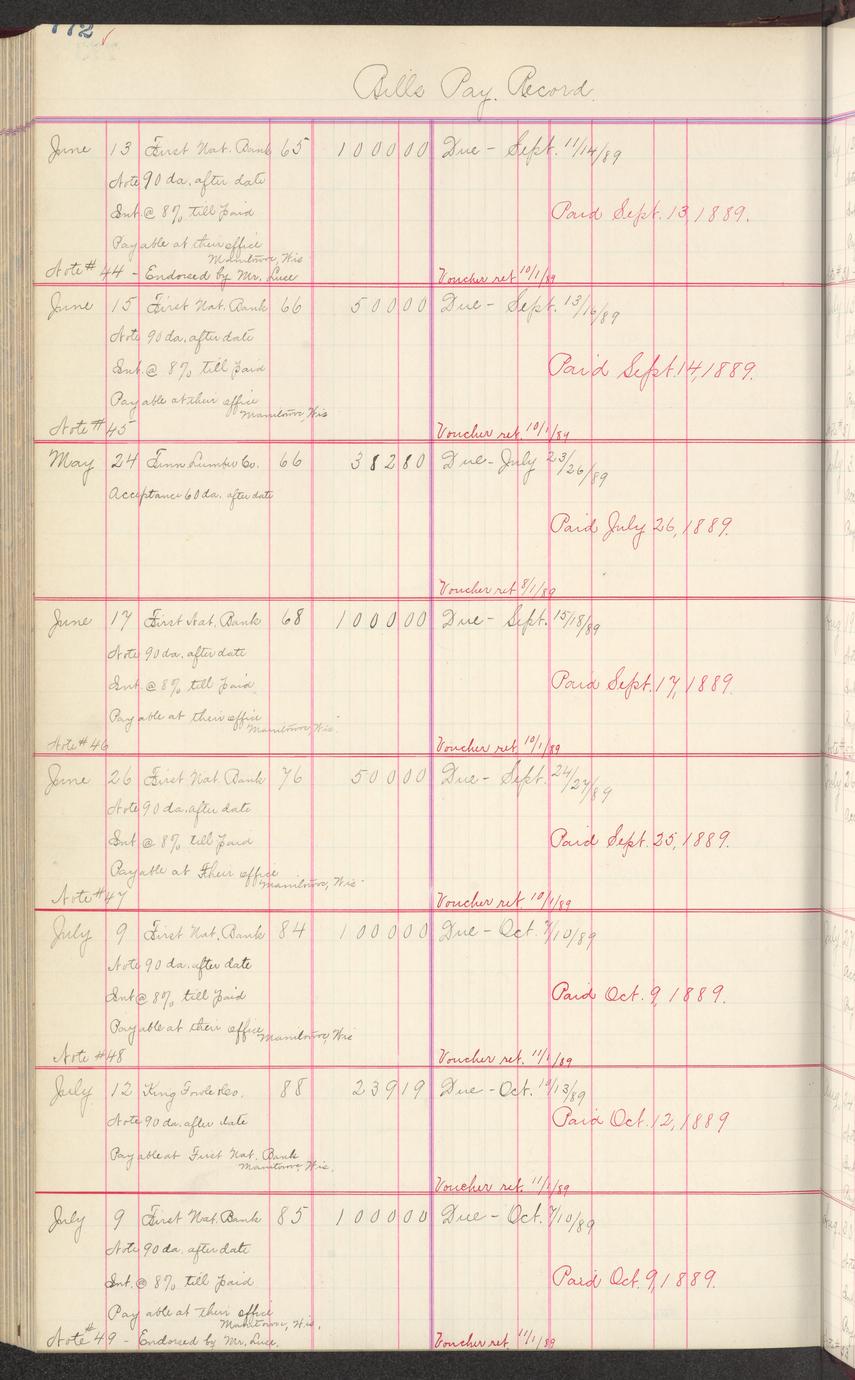 172 ✓
Bills Pay. Record.
June 13 First Nat. Bank 65 1000 00 Due - Sept. 11/14/89
Note 90 da. after date
Int. @ 8% till paid Paid Sept. 13, 1889.
Payable at their office
Manitowoc, Wis
Note # 44 - Endorsed by Mr. Luce Voucher ret 10/1/89
June 15 First Nat. Bank 66 500 00 Due - Sept. 13/16/89
Note 90 da. after date
Int. @ 8% till paid Paid Sept. 14, 1889.
Payable at their office
Manitowoc, Wis
Note # 45 Voucher ret. 10/1/89
May 24 Finn Lumber Co. 66 382 80 Due - July 23/26/89
Acceptance 60 da. after date
Paid July 26, 1889.
Voucher ret 8/1/89
June 17 First Nat. Bank 68 1000 00 Due - Sept. 15/18/89
Note 90 da. after date
Int. @ 8% till paid Paid Sept. 17, 1889.
Payable at their office
Manitowoc, Wis.
Note # 46 Voucher ret 10/1/89
June 26 First Nat Bank 76 500 00 Due - Sept. 24/27/89
Note 90 da. after date
Int @ 8% till paid Paid Sept. 25, 1889.
Payable at their office
Manitowoc, Wis -
Note # 47 Voucher ret 10/1/89
July 9 First Nat. Bank 84 1000 00 Due - Oct. 7/10/89
Note 90 da. after date
Int @ 8% till paid Paid Oct. 9, 1889.
Payable at their office
Manitowoc, Wis
Note # 48 Voucher ret. 11/1/89
July 12 King Fowle & Co. 88 239 19 Due - Oct. 10/13/89
Note 90 da. after date Paid Oct. 12, 1889
Payable at First Nat. Bank
Manitowoc Wis.
Voucher ret. 11/1/89
July 9 First Nat. Bank 85 1000 00 Due - Oct. 7/10/89
Note 90 da. after date
Int. @ 8% till paid Paid Oct. 9, 1889.
Payable at their office
Manitowoc, Wis.
Note # 49 - Endorsed by Mr. Luce. Voucher ret 11/1/89